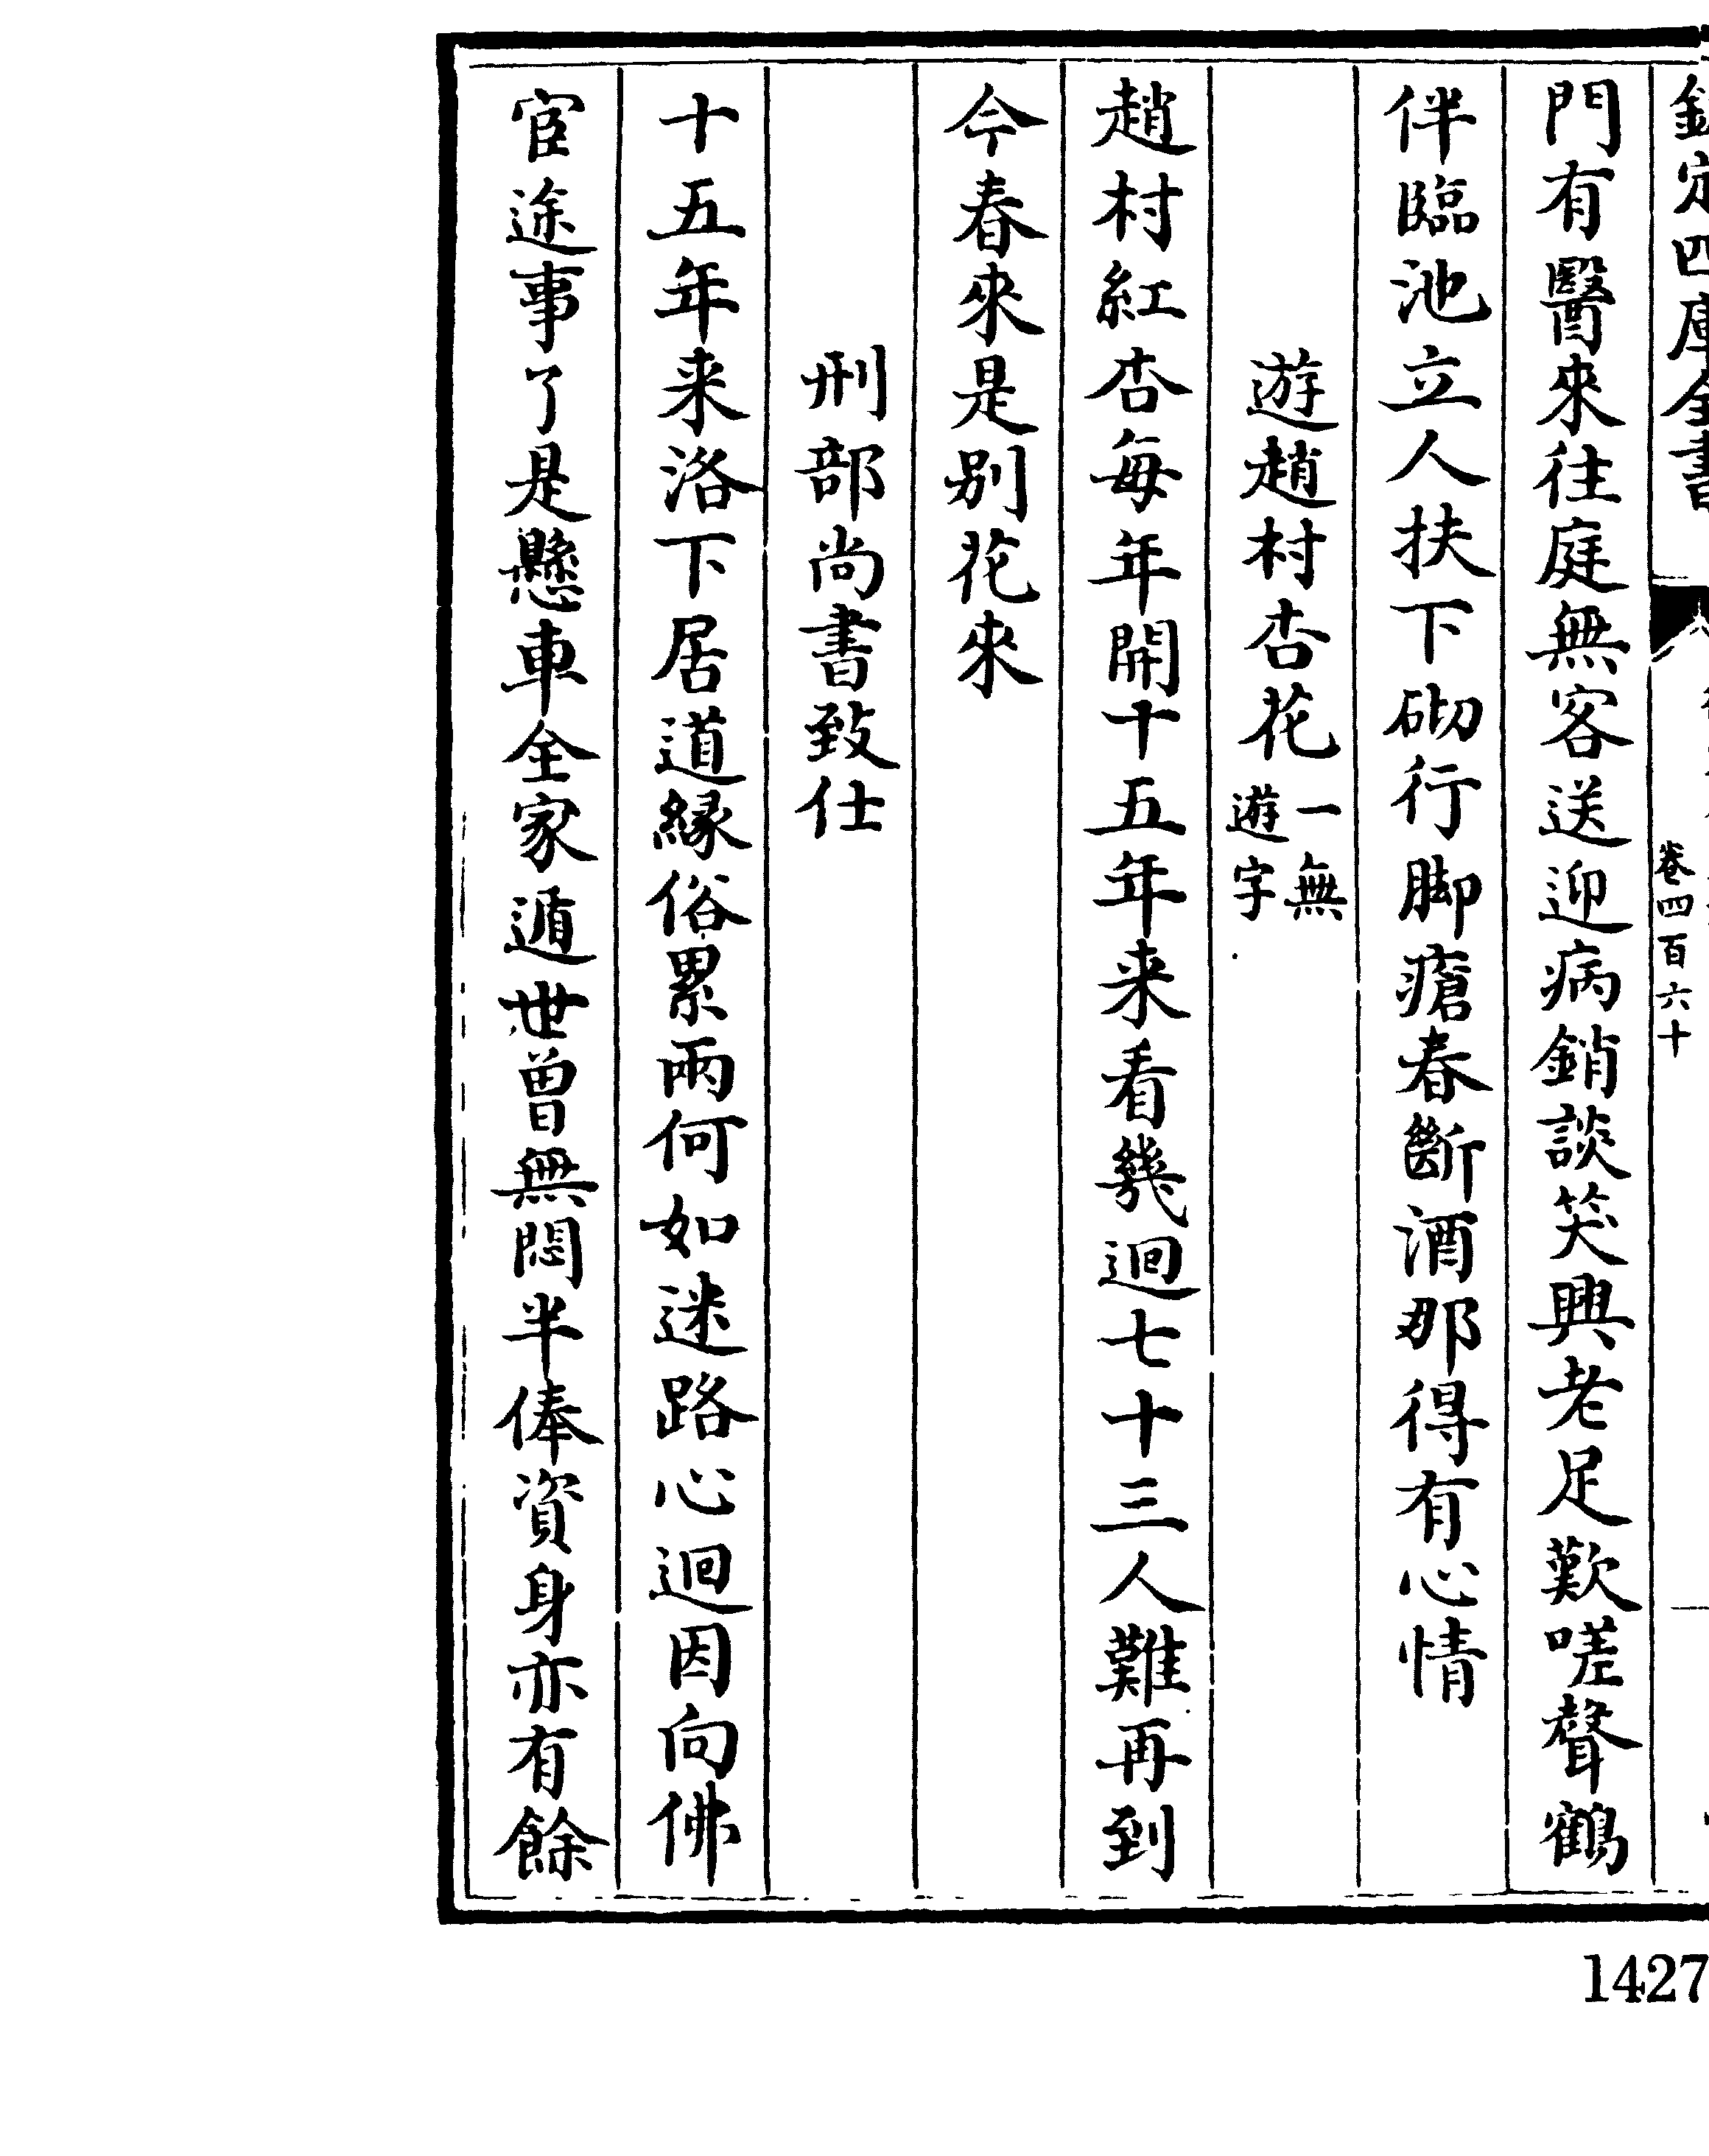 欽定四庫全書
卷四百六十
門有醫來往庭無客送迎病銷談笑興老足歎嗟聲鶴
伴臨池立人扶下砌行脚瘡春斷酒那得有心情
遊趙村杏花一無遊字
趙村紅杏每年開十五年来看幾迴七十三人難再到
今春來是别花來
刑部尚書致仕
十五年来洛下居道縁俗累兩何如迷路心迴因向佛
宦途事了是懸車全家遁世曾無悶半俸資身亦有餘
1427